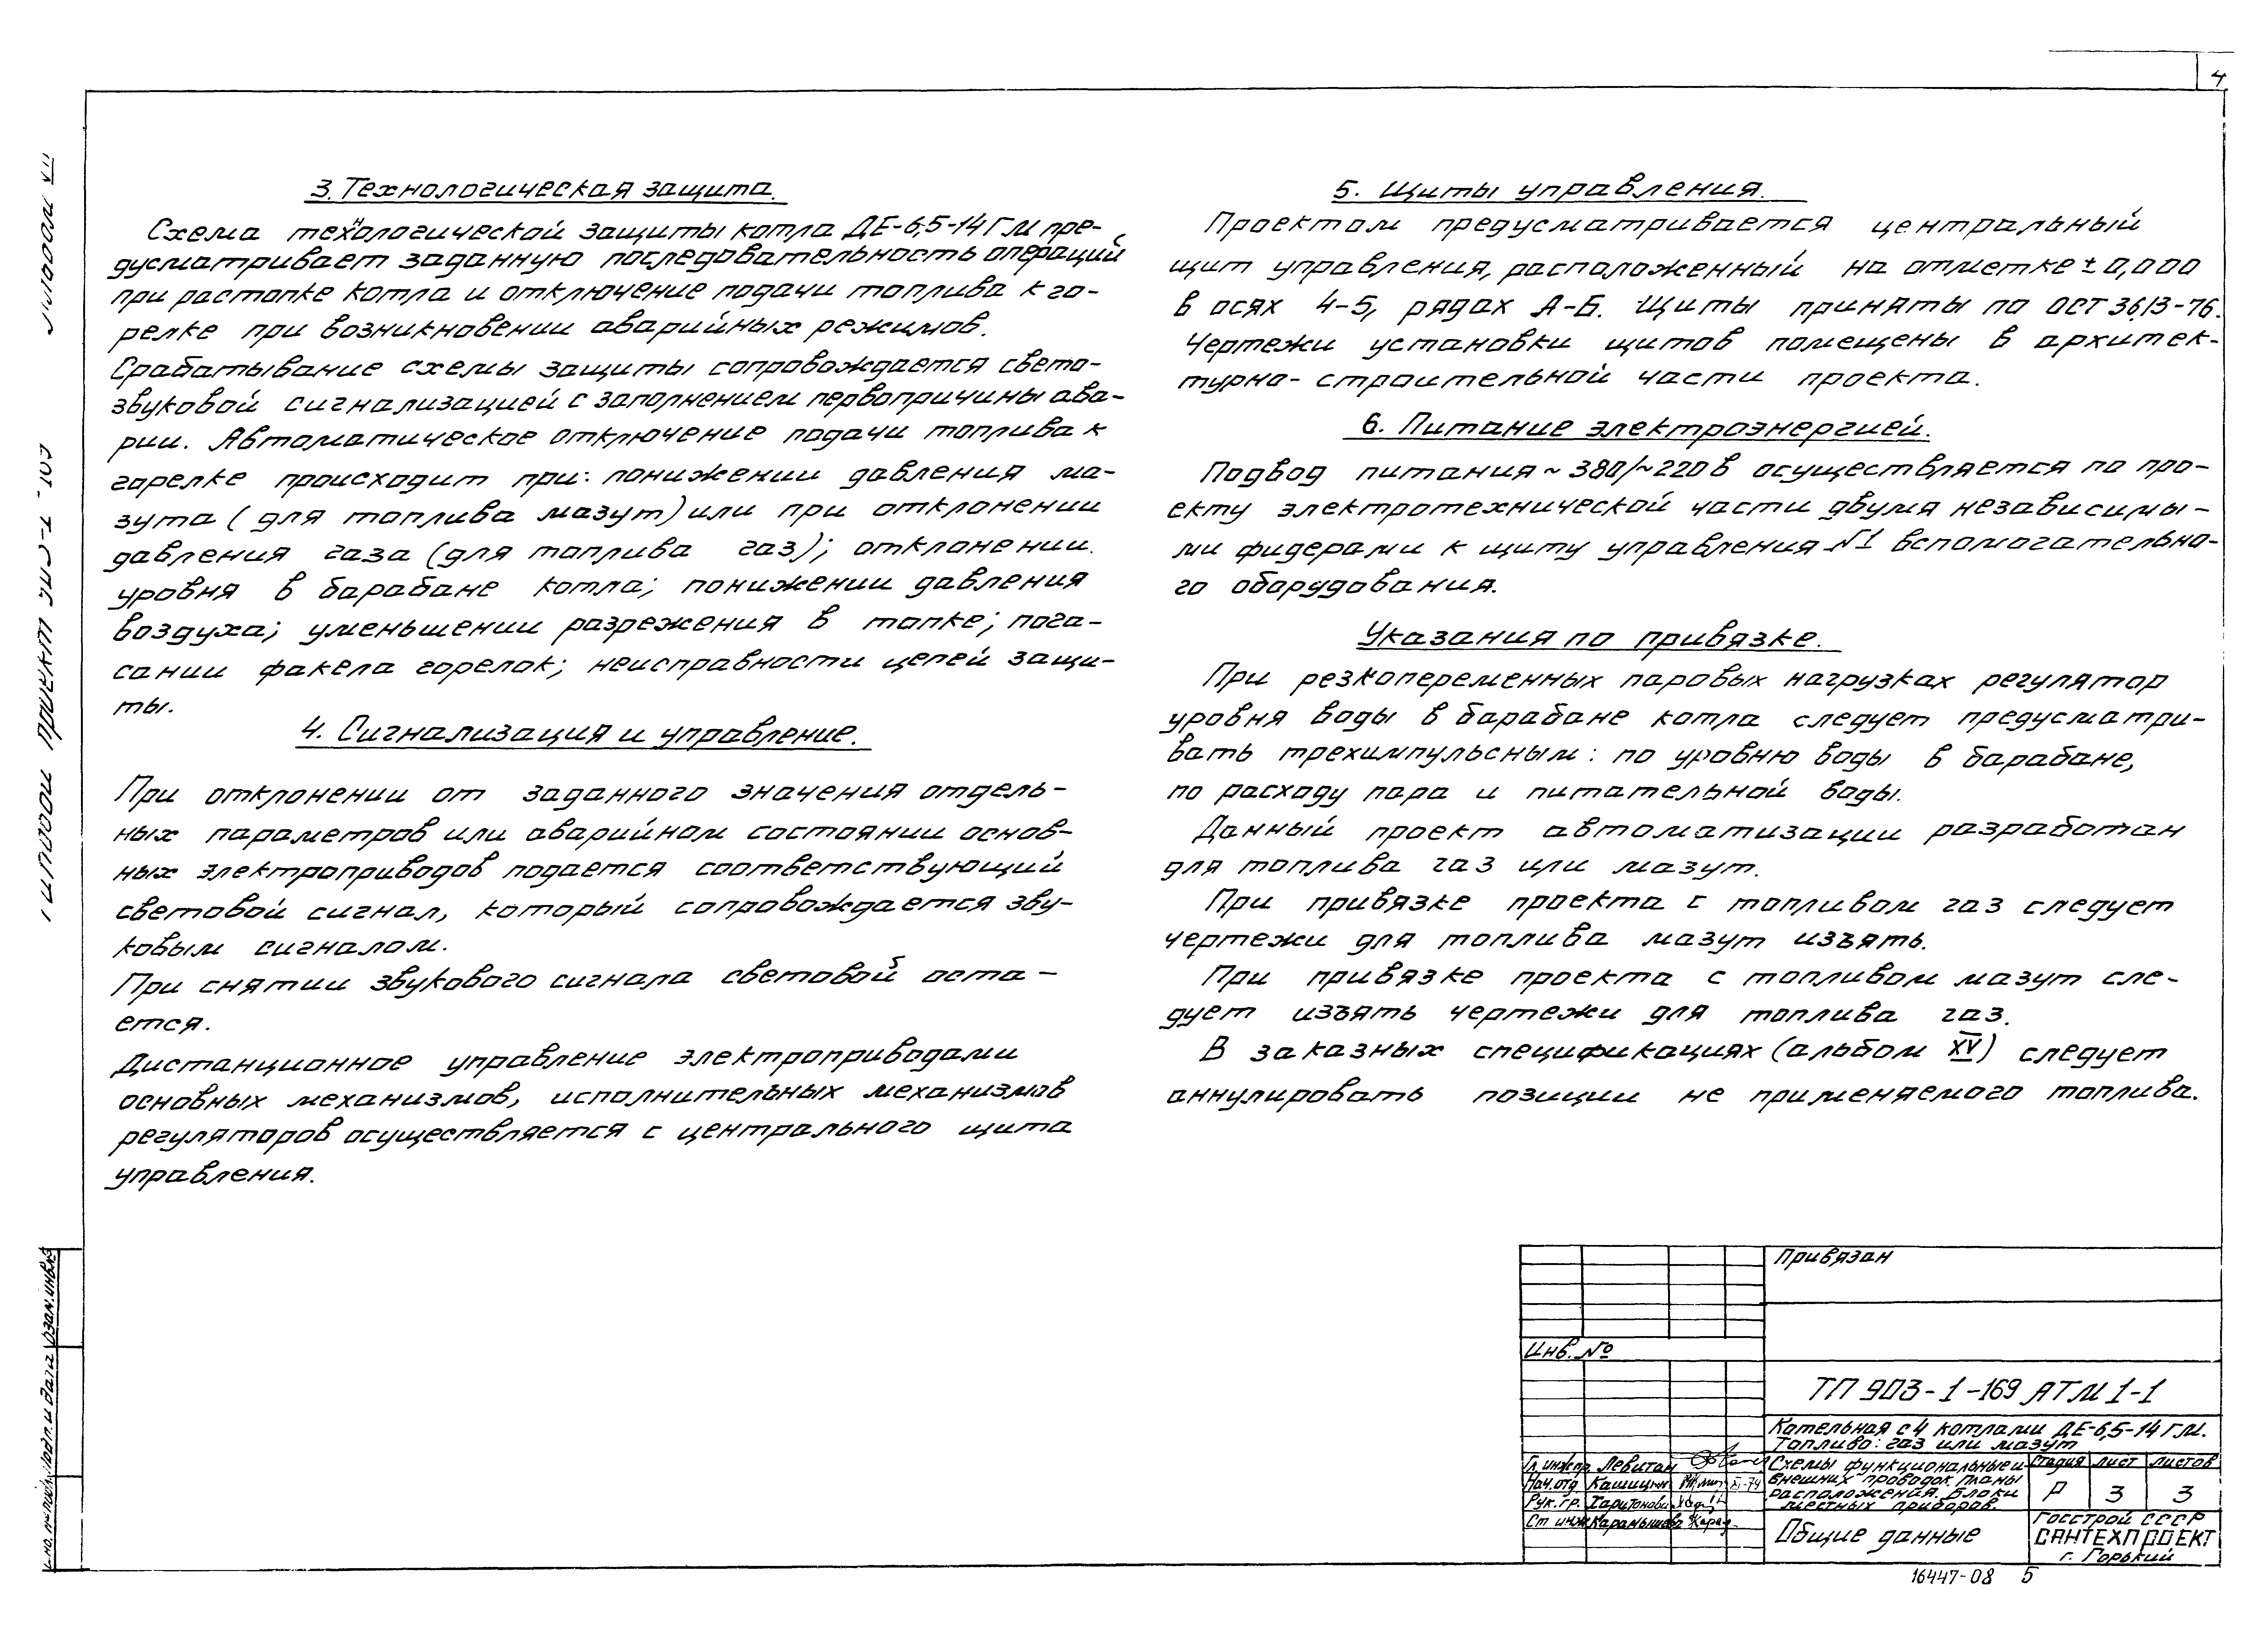 4
3. Технологическая защита.
Схема технологической защиты котла ДЕ-6,5-14ГМ пре-
дусматривает заданную последовательность операций
при растопке котла и отключение подачи топлива к го-
релке при возникновении аварийных режимов.
Срабатывание схемы защиты сопровождается свето-
звуковой сигнализацией с заполнением первопричины ава-
рии. Автоматическое отключение подачи топлива к
горелке происходит при: понижении давления ма-
зута (для топлива мазут) или при отклонении
давления газа (для топлива газ); отклонении
уровня в барабане котла; понижении давления
воздуха; уменьшении разрежения в топке; пога-
сании факела горелок; неисправности цепей защи-
ты.
4. Сигнализация и управление.
При отклонении от заданного значения отдель-
ных параметров или аварийном состоянии основ-
ных электроприводов подается соответствующий
световой сигнал, который сопровождается зву-
ковым сигналом.
При снятии звукового сигнала световой оста-
ется.
Дистанционное управление электроприводами
основных механизмов, исполнительных механизмов
регуляторов осуществляется с центрального щита
управления.
5. Щиты управления.
Проектом предусматривается центральный
щит управления, расположенный на отметке ± 0,000
в осях 4-5, рядах А-Б. Щиты приняты по ОСТ 36.13-76.
Чертежи установки щитов помещены в архитек-
турно-строительной части проекта.
6. Питание электроэнергией.
Подвод питания ~380/~220в осуществляется по про-
екту электротехнической части двумя независимы-
ми фидерами к щиту управления №1 вспомогательно-
го оборудования.
Указания по привязке.
При резкопеременных паровых нагрузках регулятор
уровня воды в барабане котла следует предусматри-
вать трехимпульсным: по уровню воды в барабане,
по расходу пара и питательной воды.
Данный проект автоматизации разработан
для топлива газ или мазут.
При привязке проекта с топливом газ следует
чертежи для топлива мазут изъять.
При привязке проекта с топливом мазут сле-
дует изъять чертежи для топлива газ.
В заказных спецификациях (альбом XV) следует
аннулировать позиции не применяемого топлива.
Привязан
Инв. №
ТП 903-1-169 АТМ 1-1
Котельная с 4 котлами ДЕ-6,5-14ГМ.
Топливо: газ или мазут
Гл. инж. пр. Левитан
Нач. отд. Кашицын XI-79
Рук. гр. Харитонова
Ст инж Карамышева
Схемы функциональные и
внешних проводок. Планы
расположения. Блоки
местных приборов.
Стадия лист листов
Р 3 3
Общие данные
Госстрой СССР
САНТЕХПРОЕКТ
г. Горький
16447-08 5
Типовой проект 903-1-169
Альбом VII
Инв. № подл. Подп. и дата Взам. инв. №